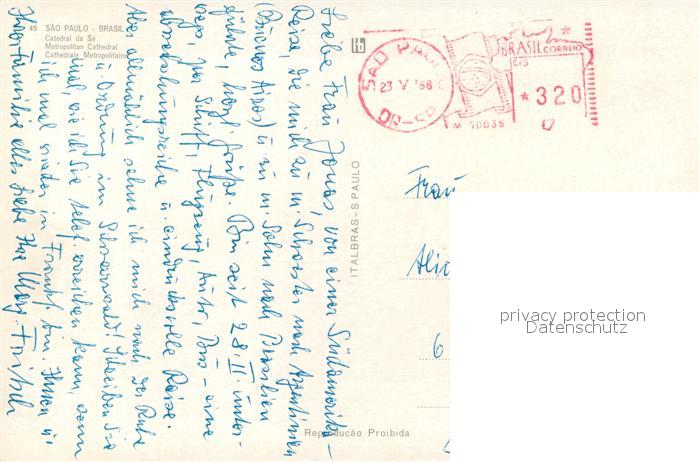 45 SÃO PAULO - BRASIL
Catedral da Sé
Metropolitan Cathedral
Cathedrale Metropolitaine
Liebe Frau Jonas, von einer Südamerika-
Reise, die mich zu m. Schwester nach Argentinien
(Buenos Aires) u. zu m. Sohn nach Brasilien
führte, herzl. Grüße. Bin seit 28. II. unter-
wegs, per Schiff, Flugzeug, Auto, Bus - eine
abwechslungsreiche u. eindrucksvolle Reise.
Aber allmählich sehne ich mich nach der Ruhe
u. Ordnung im Schwarzwald! Schreiben Sie
mal, wie ich Sie telef. erreichen kann, wenn
ich mal wieder in Frankf. bin. Ihnen u.
Ihrer Familie alles Liebe Ihre
ITALBRAS-S.PAULO
Reprodução Proibida
SÃO PAULO
23 V 68
DR-SP
BRASIL CORREIO
CrS
*320
M 50035
Frau
Alic
6
privacy protection
Datenschutz